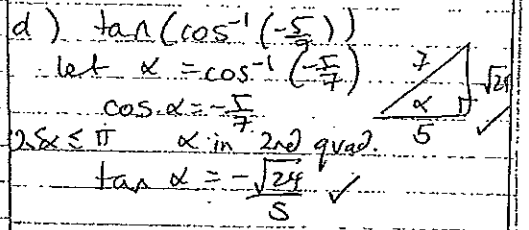 d) tan(cos⁻¹(-5/7))
let α = cos⁻¹(-5/7)
cos α = -5/7
0 ≤ α ≤ π α in 2nd quad.
tan α = -√24/5 ✓
7
√24
α
5 ✓